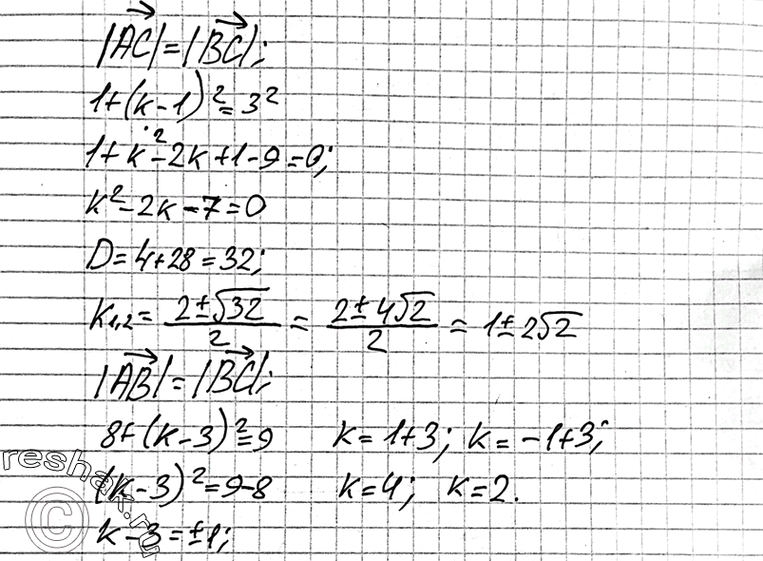 |AC| = |BC|;
1+(k-1)²=3²
1+k²-2k+1-9=0;
k²-2k-7=0
D=4+28=32;
k₁,₂= (2±√32)/2 = (2±4√2)/2 = 1±2√2
|AB| = |BC|;
8+(k-3)²=9 k=1+3; k=-1+3;
(k-3)²=9-8 k=4; k=2.
k-3=±1;
reshak.ru
©